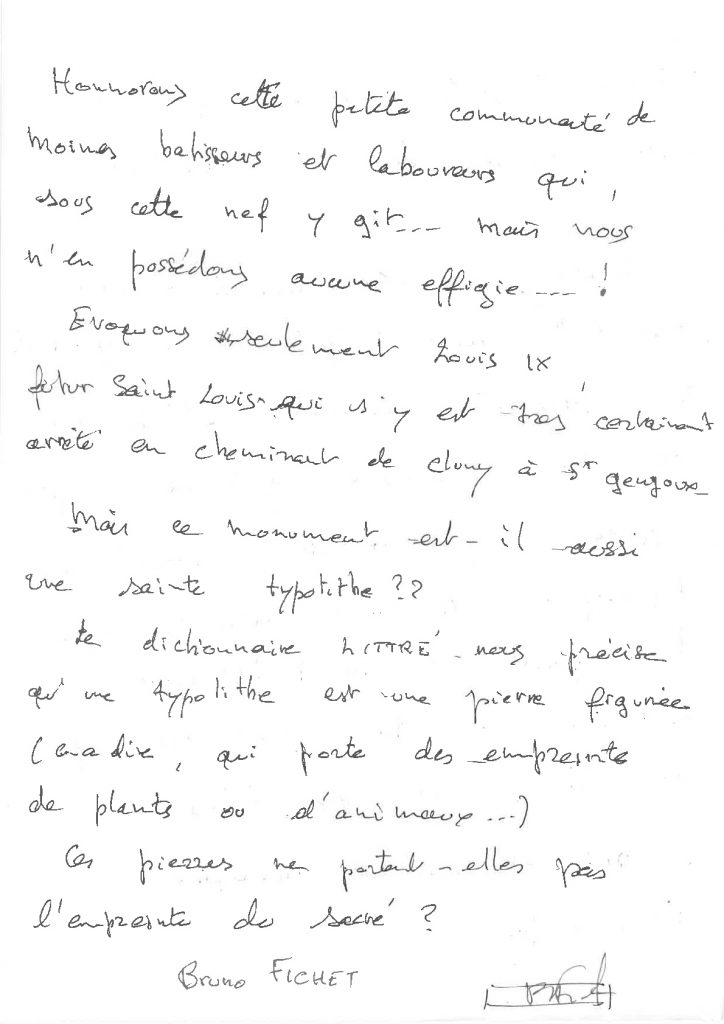 Honnorons cette petite communauté de
moines batisseurs et laboureurs qui,
sous cette nef y git... mais nous
n'en possédons aucune effigie .... !
Evoquons seulement Louis IX,
futur Saint Louis qui s'y est très certainement
arrêté en cheminant de Cluny à St gengoux
Mais ce monument est-il aussi
une sainte typolithe ??
Le dictionnaire LITTRÉ nous précise
qu'une typolithe est une pierre figurée
(c a dire, qui porte des empreinte
de plants ou d'animaux...)
Ces pierres ne portent-elles pas
l'empreinte du sacré ?
Bruno FICHET